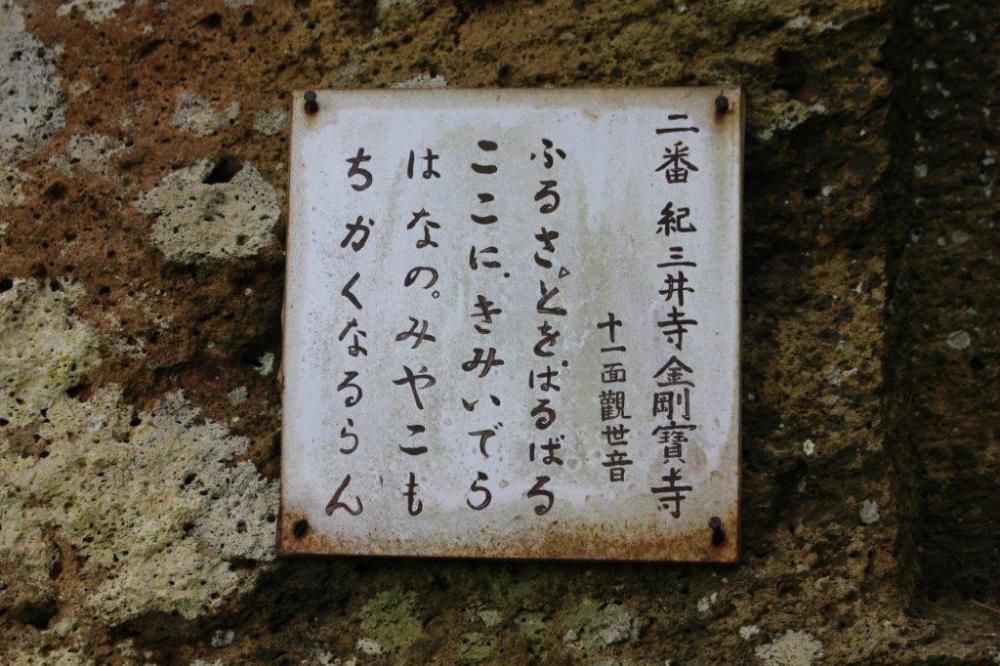 二番 紀三井寺金剛寶寺
十一面觀世音
ふるさ。とを。はるばる
ここに。きみいでら
はなの。みやこも
ちかくなるらん